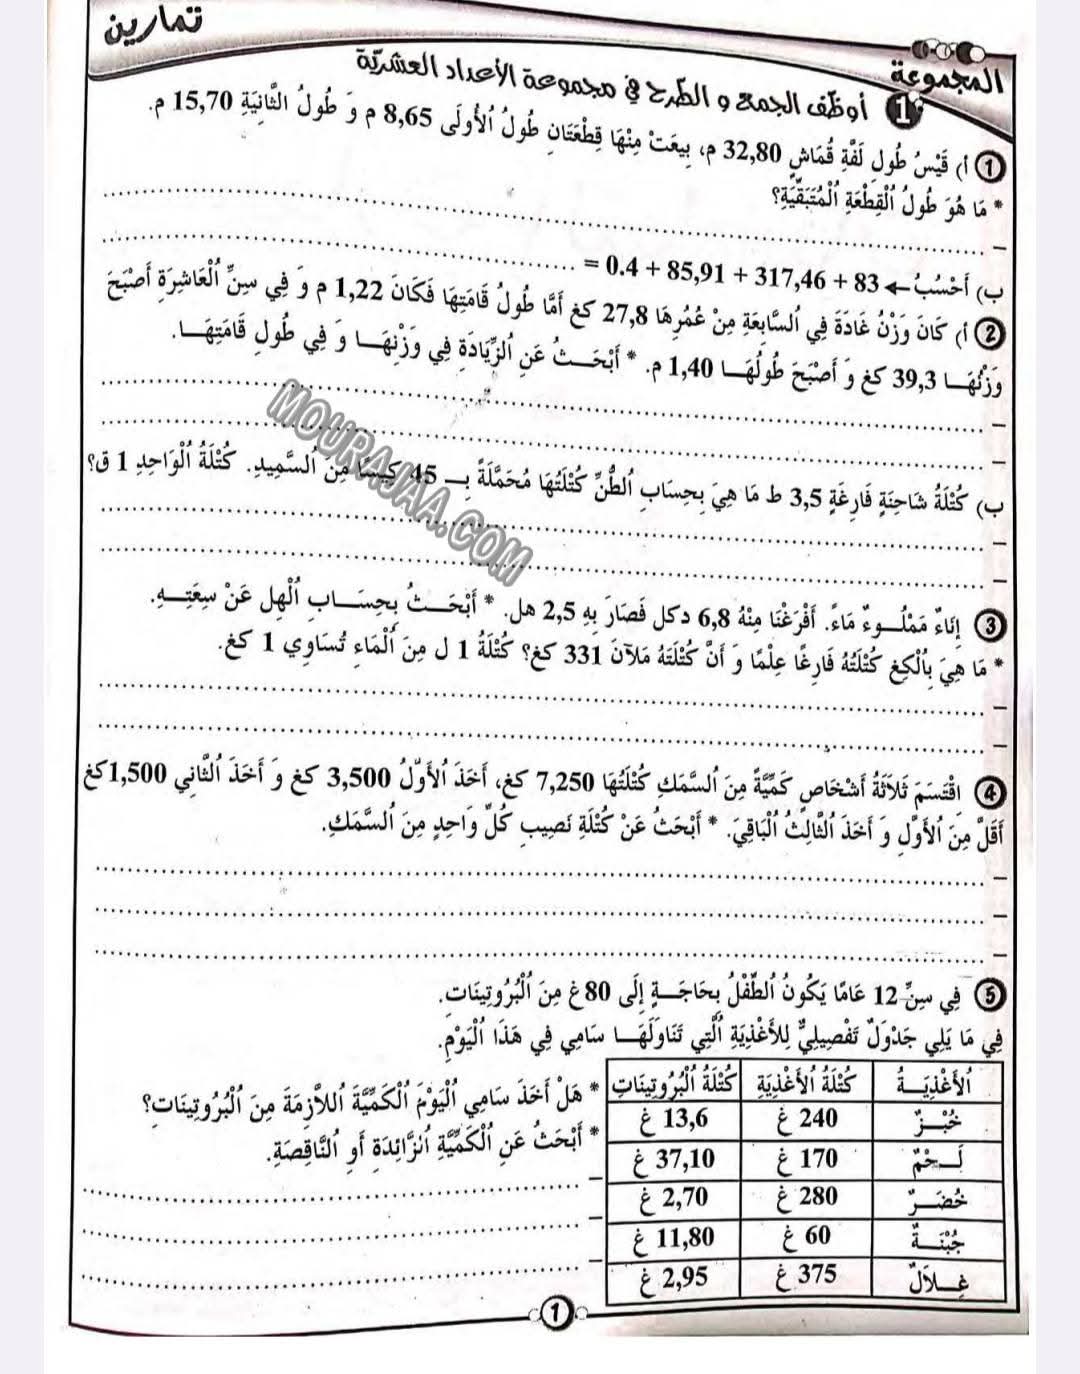 تمارين
المجموعة
1 أوظّف الجمع و الطّرح في مجموعة الأعداد العشريّة
1 أ) قَيْسُ طُولِ لَفَّةِ قُمَاشٍ 32,80 م، بِيعَتْ مِنْهَا قِطْعَتَانِ طُولُ الْأُولَى 8,65 م وَ طُولُ الثَّانِيَةِ 15,70 م.
* مَا هُوَ طُولُ الْقِطْعَةِ الْمُتَبَقِّيَةِ؟
ب) أَحْسُبُ ← 83 + 317,46 + 85,91 + 0.4 =
2 أ) كَانَ وَزْنُ غَادَةَ فِي السَّابِعَةِ مِنْ عُمُرِهَا 27,8 كغ أَمَّا طُولُ قَامَتِهَا فَكَانَ 1,22 م وَ فِي سِنِّ الْعَاشِرَةِ أَصْبَحَ
وَزْنُهَا 39,3 كغ وَ أَصْبَحَ طُولُهَا 1,40 م. * أَبْحَثُ عَنِ الزِّيَادَةِ فِي وَزْنِهَا وَ فِي طُولِ قَامَتِهَا.
MOURAJAA.COM
ب) كُتْلَةُ شَاحِنَةٍ فَارِغَةٍ 3,5 ط مَا هِيَ بِحِسَابِ الطُّنِّ كُتْلَتُهَا مُحَمَّلَةً بِـ 45 كِيسًا مِنَ السَّمِيدِ. كُتْلَةُ الْوَاحِدِ 1 ق؟
3 إِنَاءٌ مَمْلُوءٌ مَاءً. أَفْرَغْنَا مِنْهُ 6,8 دكل فَصَارَ بِهِ 2,5 هل. * أَبْحَثُ بِحِسَابِ الْهل عَنْ سِعَتِهِ.
* مَا هِيَ بِالْكِغ كُتْلَتُهُ فَارِغًا عِلْمًا وَ أَنَّ كُتْلَتَهُ مَلآنَ 331 كغ؟ كُتْلَةُ 1 ل مِنَ الْمَاءِ تُسَاوِي 1 كغ.
4 اقْتَسَمَ ثَلَاثَةُ أَشْخَاصٍ كَمِّيَّةً مِنَ السَّمَكِ كُتْلَتُهَا 7,250 كغ، أَخَذَ الْأَوَّلُ 3,500 كغ وَ أَخَذَ الثَّانِي 1,500كغ
أَقَلَّ مِنَ الْأَوَّلِ وَ أَخَذَ الثَّالِثُ الْبَاقِيَ. * أَبْحَثُ عَنْ كُتْلَةِ نَصِيبِ كُلِّ وَاحِدٍ مِنَ السَّمَكِ.
5 فِي سِنِّ 12 عَامًا يَكُونُ الطِّفْلُ بِحَاجَةٍ إِلَى 80 غ مِنَ الْبُرُوتِينَاتِ.
فِي مَا يَلِي جَدْوَلٌ تَفْصِيلِيٌّ لِلأَغْذِيَةِ الَّتِي تَنَاوَلَهَا سَامِي فِي هَذَا الْيَوْمِ.
الْأَغْذِيَةُ كُتْلَةُ الْأَغْذِيَةِ كُتْلَةُ الْبُرُوتِينَاتِ
خُبْزٌ 240 غ 13,6 غ
لَحْمٌ 170 غ 37,10 غ
خُضَرٌ 280 غ 2,70 غ
جُبْنَةٌ 60 غ 11,80 غ
غِلاَلٌ 375 غ 2,95 غ
* هَلْ أَخَذَ سَامِي الْيَوْمَ الْكَمِّيَّةَ اللَّازِمَةَ مِنَ الْبُرُوتِينَاتِ؟
* أَبْحَثُ عَنِ الْكَمِّيَّةِ الزَّائِدَةِ أَوِ النَّاقِصَةِ.
1